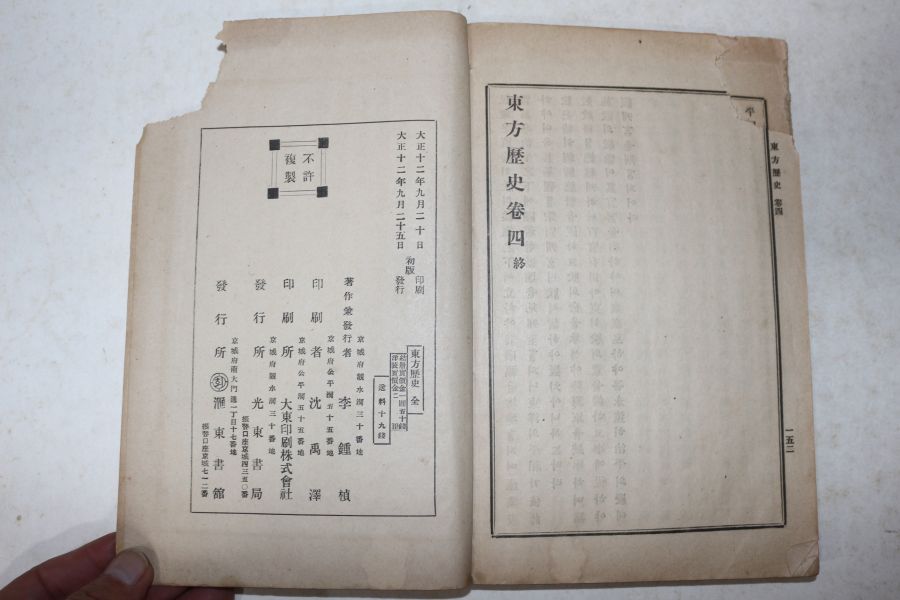 平
東方歷史 卷四
一五二
東方歷史卷四 終
不許
複製
大正十二年九月二十日 印刷
大正十二年九月二十五日 初版 發行
東方歷史 全
送料十九錢
京城府觀水洞三十番地
著作兼發行者 李鍾楨
京城府公平洞五十五番地
印刷者 沈禹澤
京城府公平洞五十五番地
印刷所 大東印刷株式會社
京城府觀水洞三十番地
發行所 光東書局
振替口座京城四三五〇番
京城府南大門通一丁目十七番地
發行所 滙東書館
振替口座京城七一二番